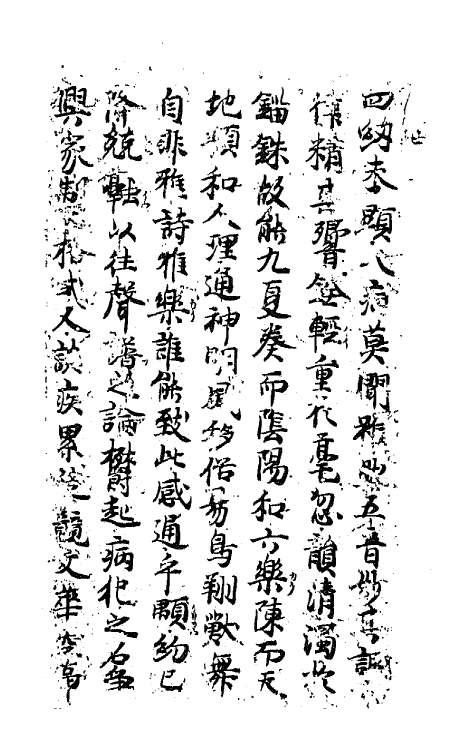 四紉未顕八病莫聞雖然五音妙其調
律精其響銓輕重於毫忽韻清濁於
錙銖故能九夏奏而陰陽和六樂陳而天
地順和人理通神明風移俗易鳥翔獸舞
自非雅詩雅樂誰能致此感通乎顒約已
降兢融以往聲譜之論欝起病犯之名爭
興家制格式人談疾累徒競文華空事